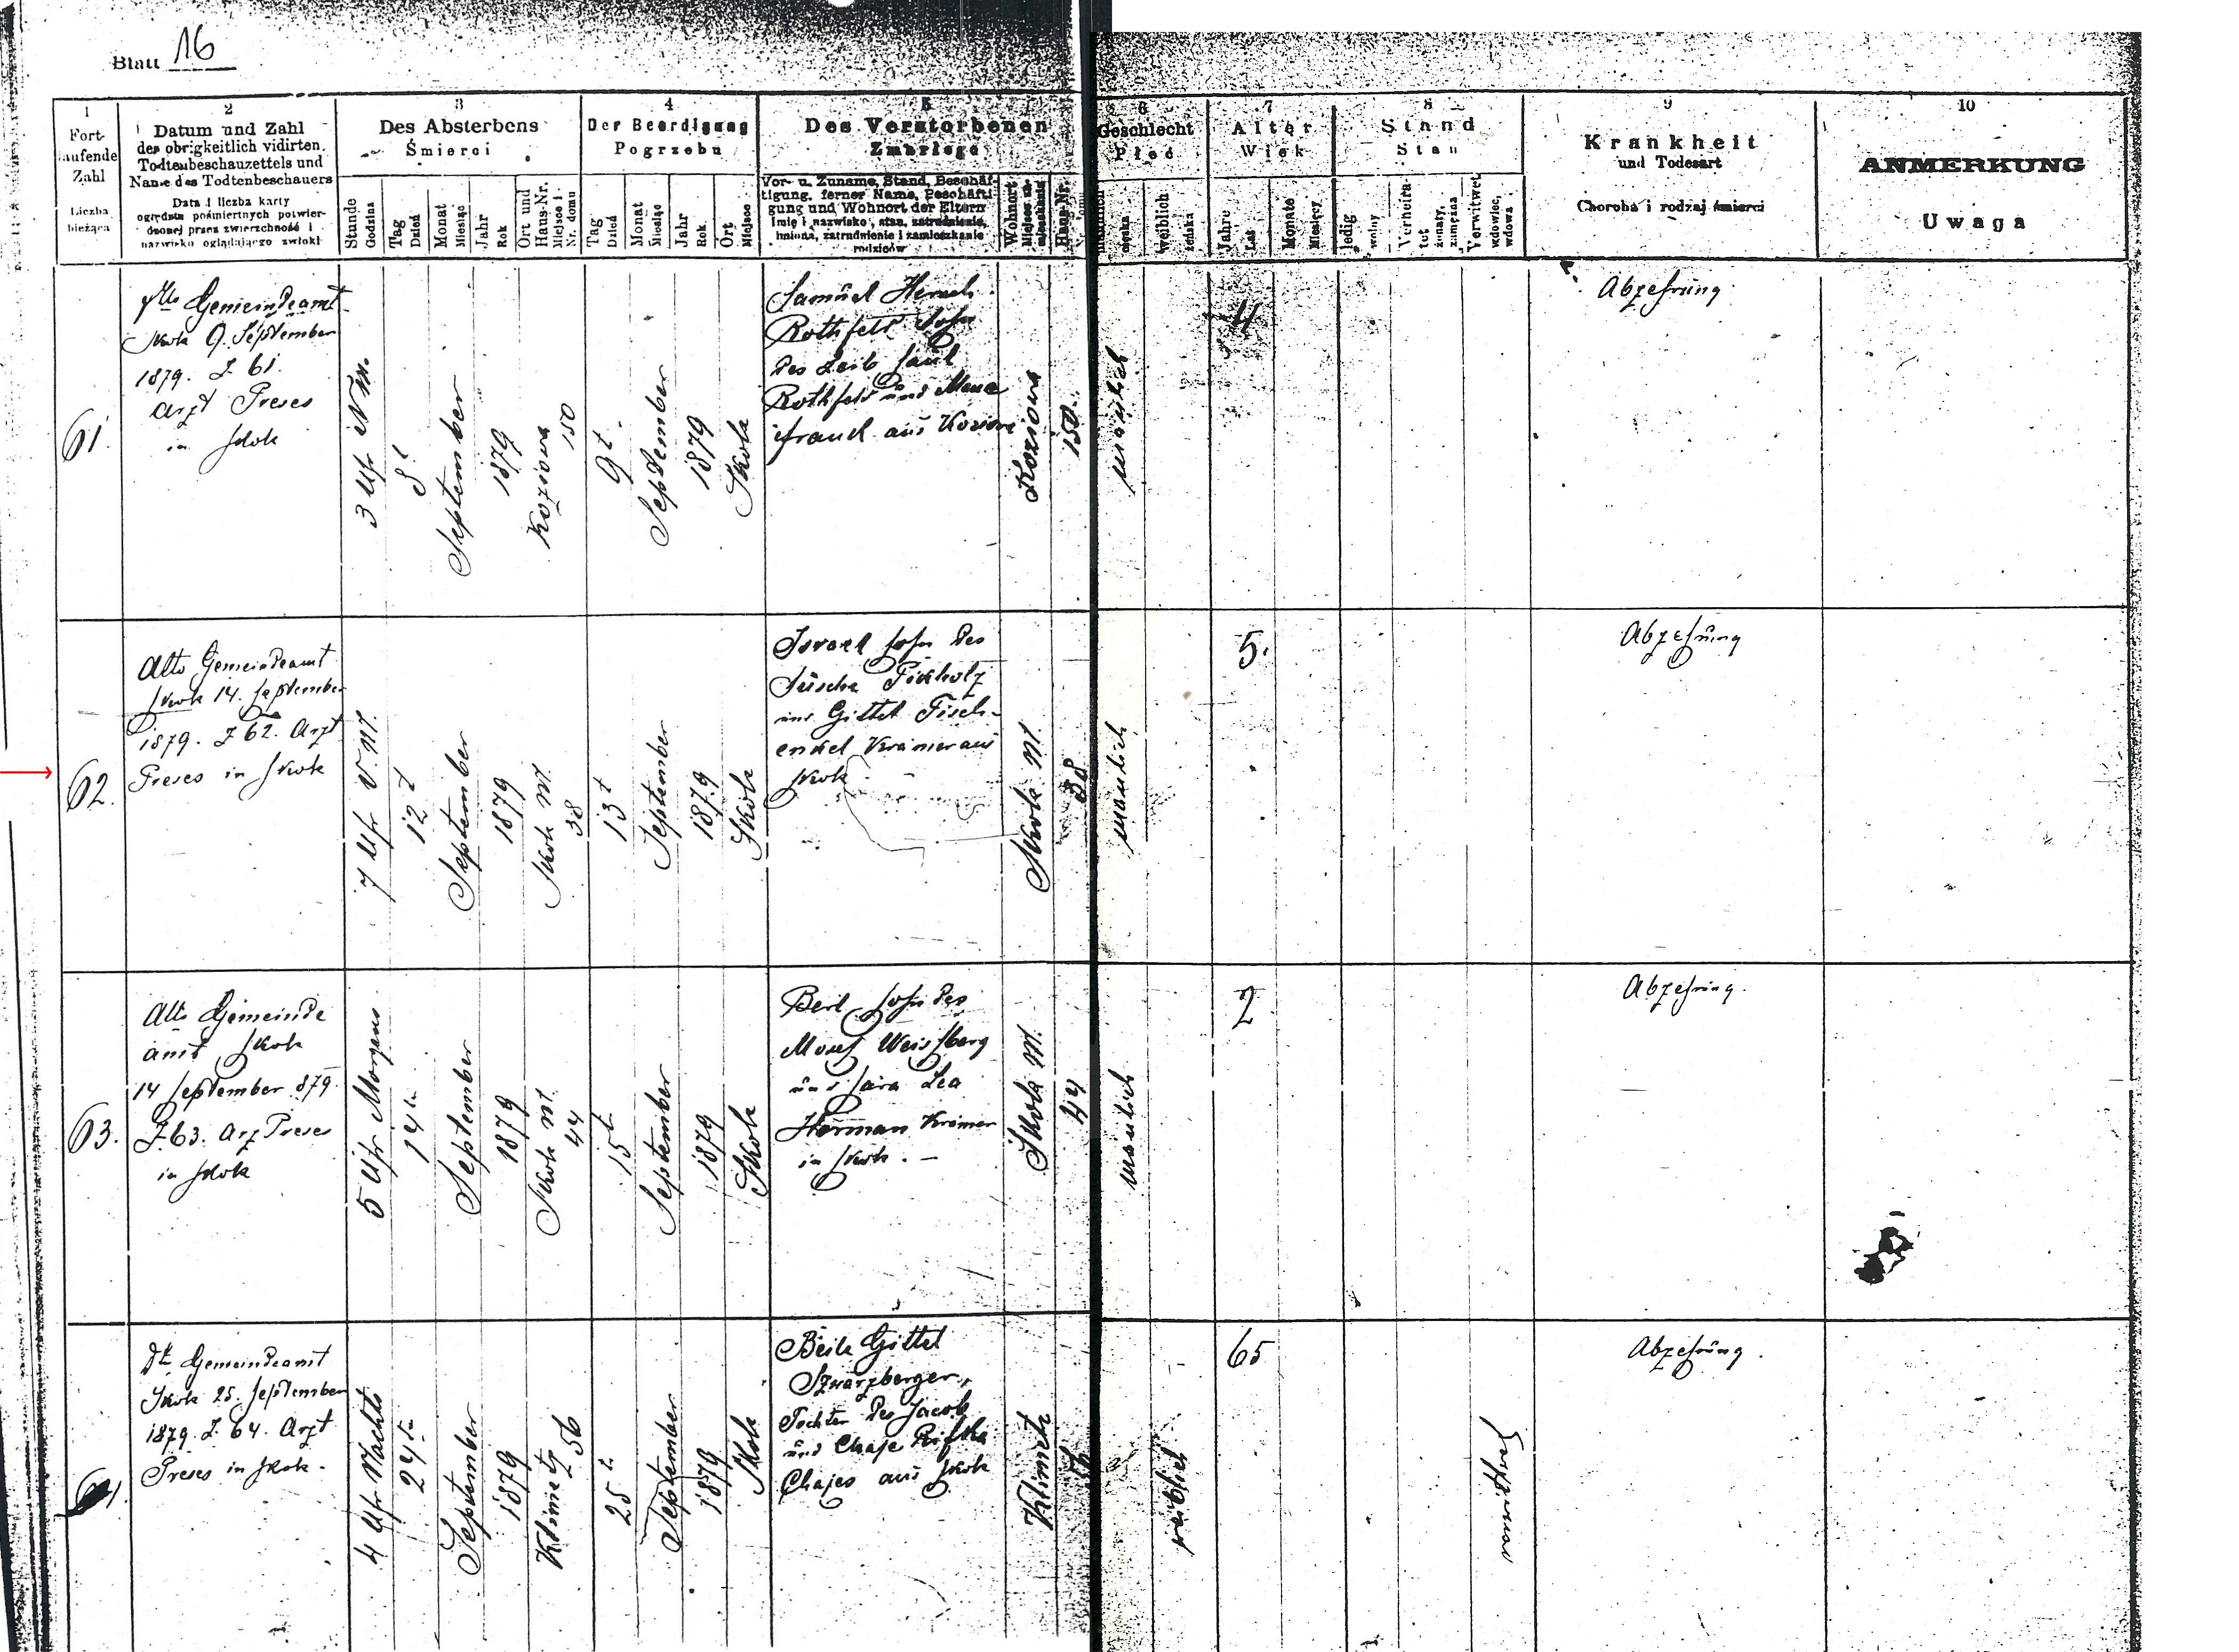 Blatt 16
1
Fort-
laufende
Zahl
Liczba
bieżąca
2
Datum und Zahl
des obrigkeitlich vidirten
Todtenbeschauzettels und
Name des Todtenbeschauers
Data i liczba karty
oględzin pośmiertnych potwier-
dzonej przez zwierzchność i
nazwisko oglądającego zwłoki
3
Des Absterbens
Śmierci
Stunde
Godzina
Tag
Dzień
Monat
Miesiąc
Jahr
Rok
Ort und
Haus-Nr.
Miejsce i
Nr. domu
4
Der Beerdigung
Pogrzebu
Tag
Dzień
Monat
Miesiąc
Jahr
Rok
Ort
Miejsce
5
Des Verstorbenen
Zmarłego
Vor- u. Zuname, Stand, Beschäf-
tigung, ferner Name, Beschäfti
gung und Wohnort der Eltern
Imię i nazwisko, stan, zatrudnienie,
imiona, zatrudnienie i zamieszkanie
rodziców
Wohnort
Haus-Nr.
6
Geschlecht
Płeć
weiblich
żeńska
7
Alter
Wiek
Jahre
Lat
Monate
Miesięcy
8
Stand
Stan
ledig
wolny
Verheira-
tet
żonaty,
zamężna
Verwitwet
wdowiec,
wdowa
9
Krankheit
und Todesart
Choroba i rodzaj śmierci
10
ANMERKUNG
Uwaga
61.
Gemeindeamt
Skole 9. September
1879. Z 61.
Arzt Preses
in Skole
3 Uhr N.M.
8t
September
1879
Koziowa
150
9t
September
1879
Skole
Samuel Hersch
Rothfeld Sohn
des Leib Saul
Rothfeld und
aus Koziowa
Koziowa
150
männlich
4
Abzehrung
62.
Gemeindeamt
Skole 14. September
1879. Z 62. Arzt
Preses in Skole
7 Uhr V.M.
12t
September
1879
Skole M.
38
13t
September
1879
Skole
Israel Sohn des
Süsche Pickholz
und Gittel Fisch-
enkel Krämer aus
Skole
Skole M.
38
männlich
5.
Abzehrung
63.
Gemeinde
amt Skole
14 September 879.
Z. 63. Arzt Preses
in Skole
5 Uhr Morgens
14t
September
1879
Skole M.
44
15t
September
1879
Skole
Berl Sohn des
Moses Weissberg
und Sara Lea
Herman Krämer
in Skole. -
Skole M.
44
männlich
2
Abzehrung.
64.
Gemeindeamt
Skole 25. September
1879. Z. 64. Arzt
Preses in Skole.
4 Uhr Nachts
24t
September
1879
Klimetz
56
25t
September
1879
Skole
Beile Gittel
Szwarzberger,
Tochter des Jacob
und Chaje Rifka
Chajes aus Skole
Klimetz
56
weiblich
65
Abzehrung.